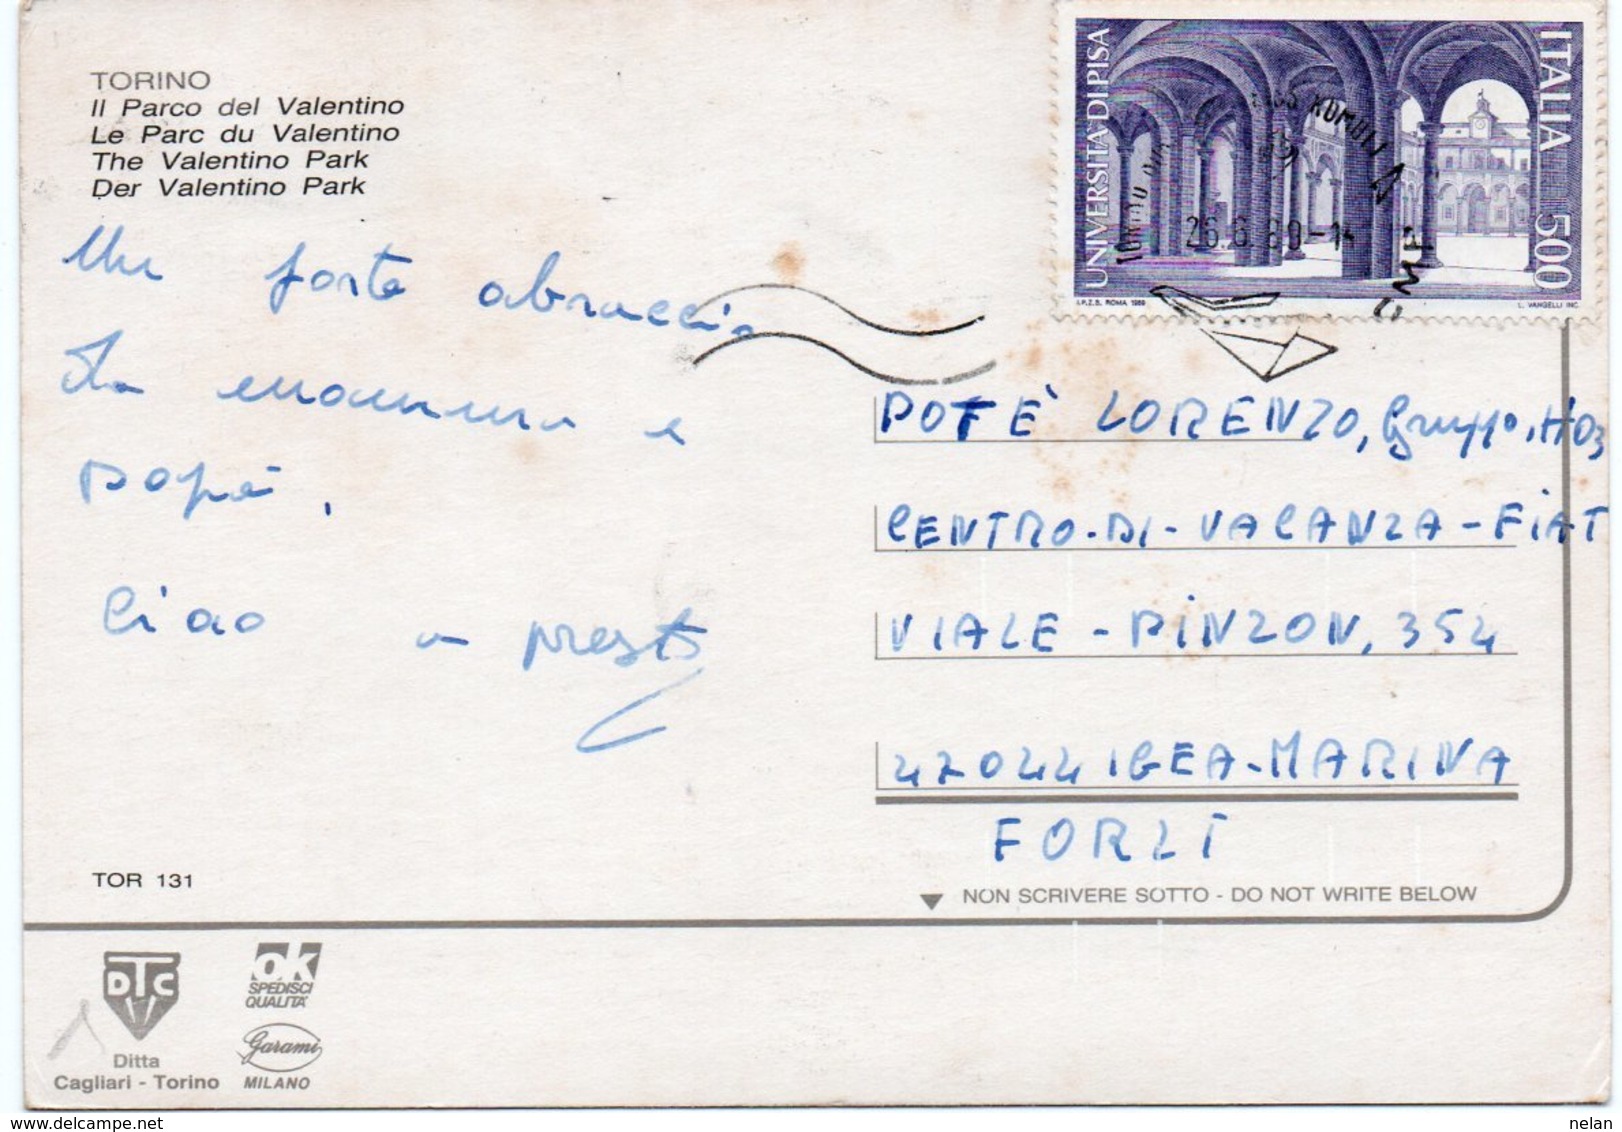 TORINO
Il Parco del Valentino
Le Parc du Valentino
The Valentino Park
Der Valentino Park
Un forte abbraccio
La mamma e
papà.
Ciao a presto
TOR 131
DTC
Ditta
Cagliari - Torino
OK
SPEDISCI
QUALITA'
Garami
MILANO
UNIVERSITÀ DI PISA
ITALIA 500
I.P.Z.S. ROMA 1989
L. VANGELLI INC.
26.6.89-14
POTE' LORENZO, Gruppo, H03
CENTRO-DI-VACANZA-FIAT
VIALE-PINZON, 354
47044 IGEA-MARINA
FORLI
NON SCRIVERE SOTTO - DO NOT WRITE BELOW
nelan